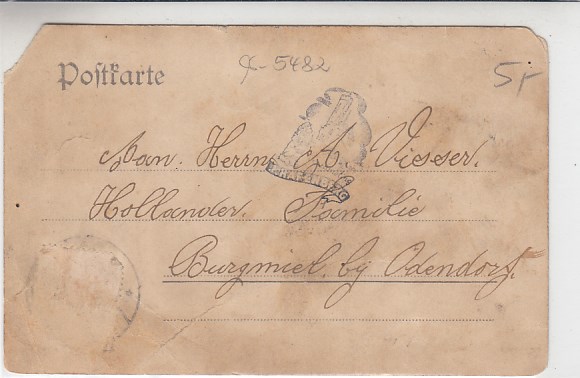 Postkarte
5482
5,-
Man. Herrn A. Visser.
Hollander. Familie
Burgmiel. by Odendorf.